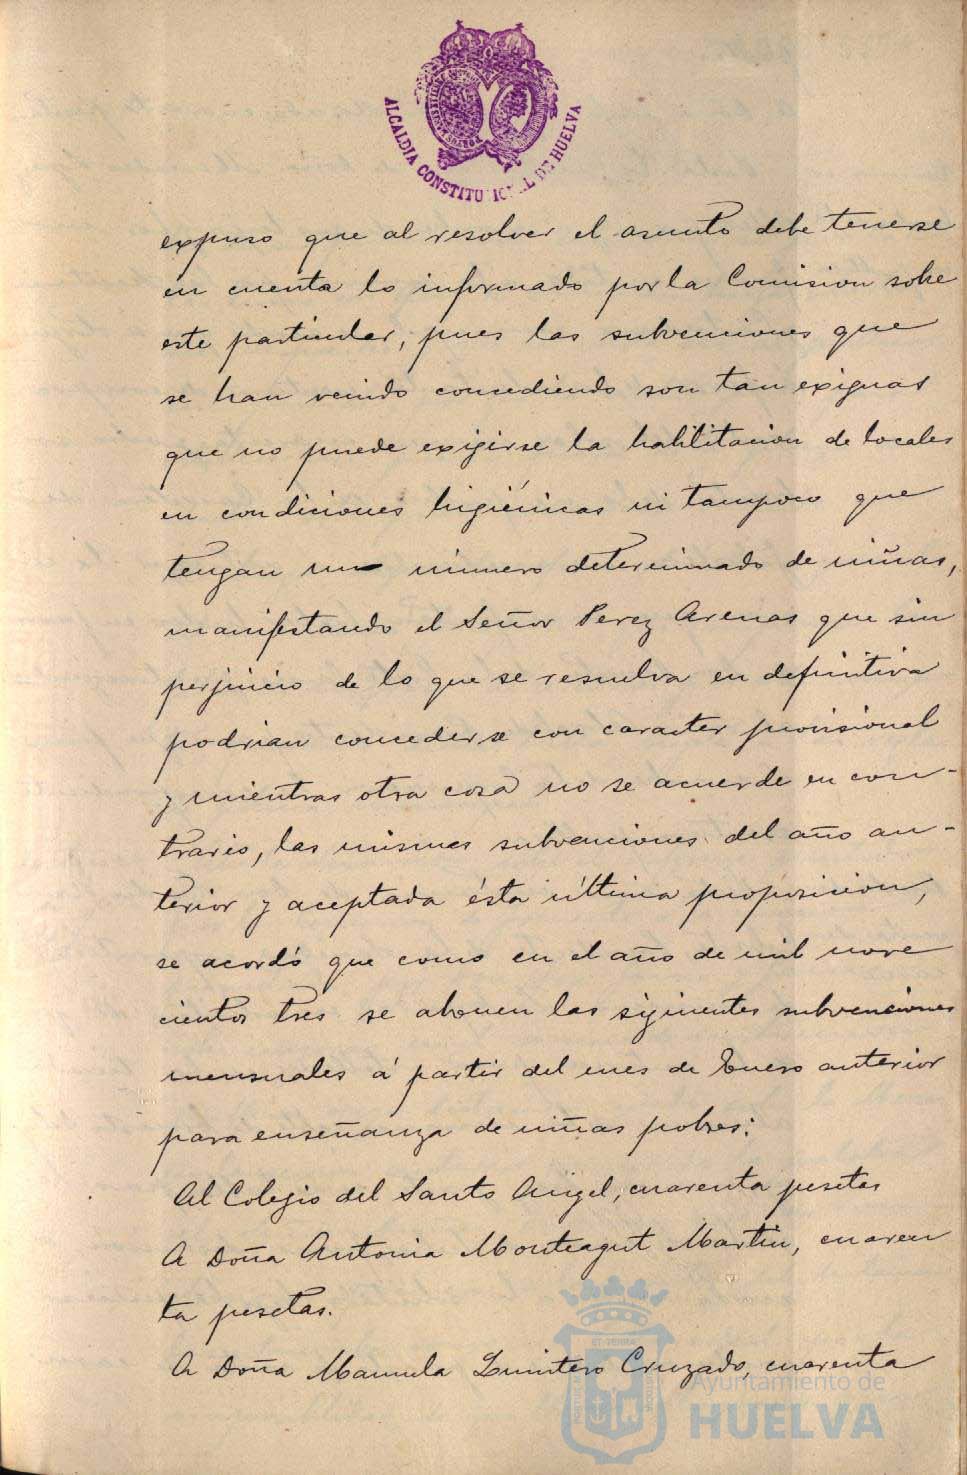 ALCALDIA CONSTITUCIONAL DE HUELVA
expuso que al resolver el asunto debe tenerse
en cuenta lo informado por la Comision sobre
este particular, pues las subvenciones que
se han venido concediendo son tan exiguas
que no puede exigirse la habilitacion de locales
en condiciones higiénicas ni tampoco que
tengan un número determinado de niñas,
manifestando el Señor Perez Arenas que sin
perjuicio de lo que se resuelva en definitiva
podrian concederse con caracter provisional
y mientras otra cosa no se acuerde en con-
trario, las mismas subvenciones del año an-
terior y aceptada ésta última proposicion,
se acordó que como en el año de mil nove
cientos tres se abonen las siguientes subvenciones
mensuales á partir del mes de Enero anterior
para enseñanza de niñas pobres:
Al Colegio del Santo Angel, cuarenta pesetas
A Doña Antonia Monteagut Martin, cuaren
ta pesetas.
A Doña Manuela Quintero Cruzado, cuarenta
Ayuntamiento de
HUELVA